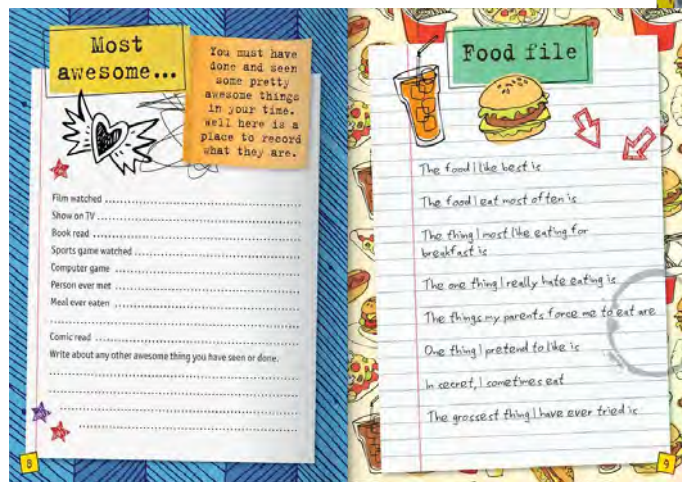 Most
awesome...
You must have
done and seen
some pretty
awesome things
in your time.
Well here is a
place to record
what they are.
Film watched
Show on TV
Book read
Sports game watched
Computer game
Person ever met
Meal ever eaten
Comic read
Write about any other awesome thing you have seen or done.
8
Food file
The food I like best is
The food I eat most often is
The thing I most like eating for
breakfast is
The one thing I really hate eating is
The things my parents force me to eat are
One thing I pretend to like is
In secret, I sometimes eat
The grossest thing I have ever tried is
9